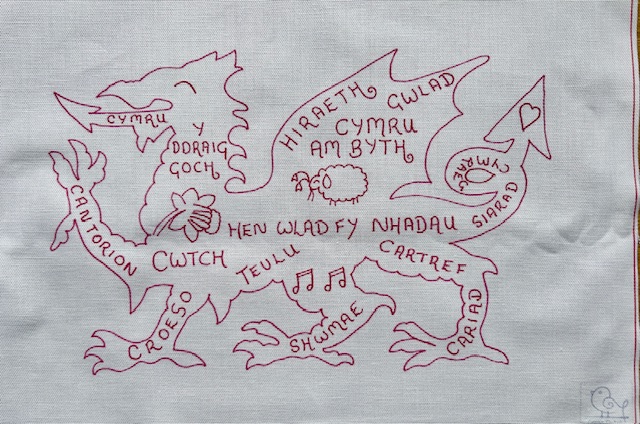 CYMRU
Y
DDRAIG
GOCH
HIRAETH
GWLAD
CYMRU
AM BYTH
CYMRAEG
SIARAD
CANTORION
HEN WLAD FY NHADAU
CWTCH
TEULU
CARTREF
CROESO
SHWMAE
CARIAD